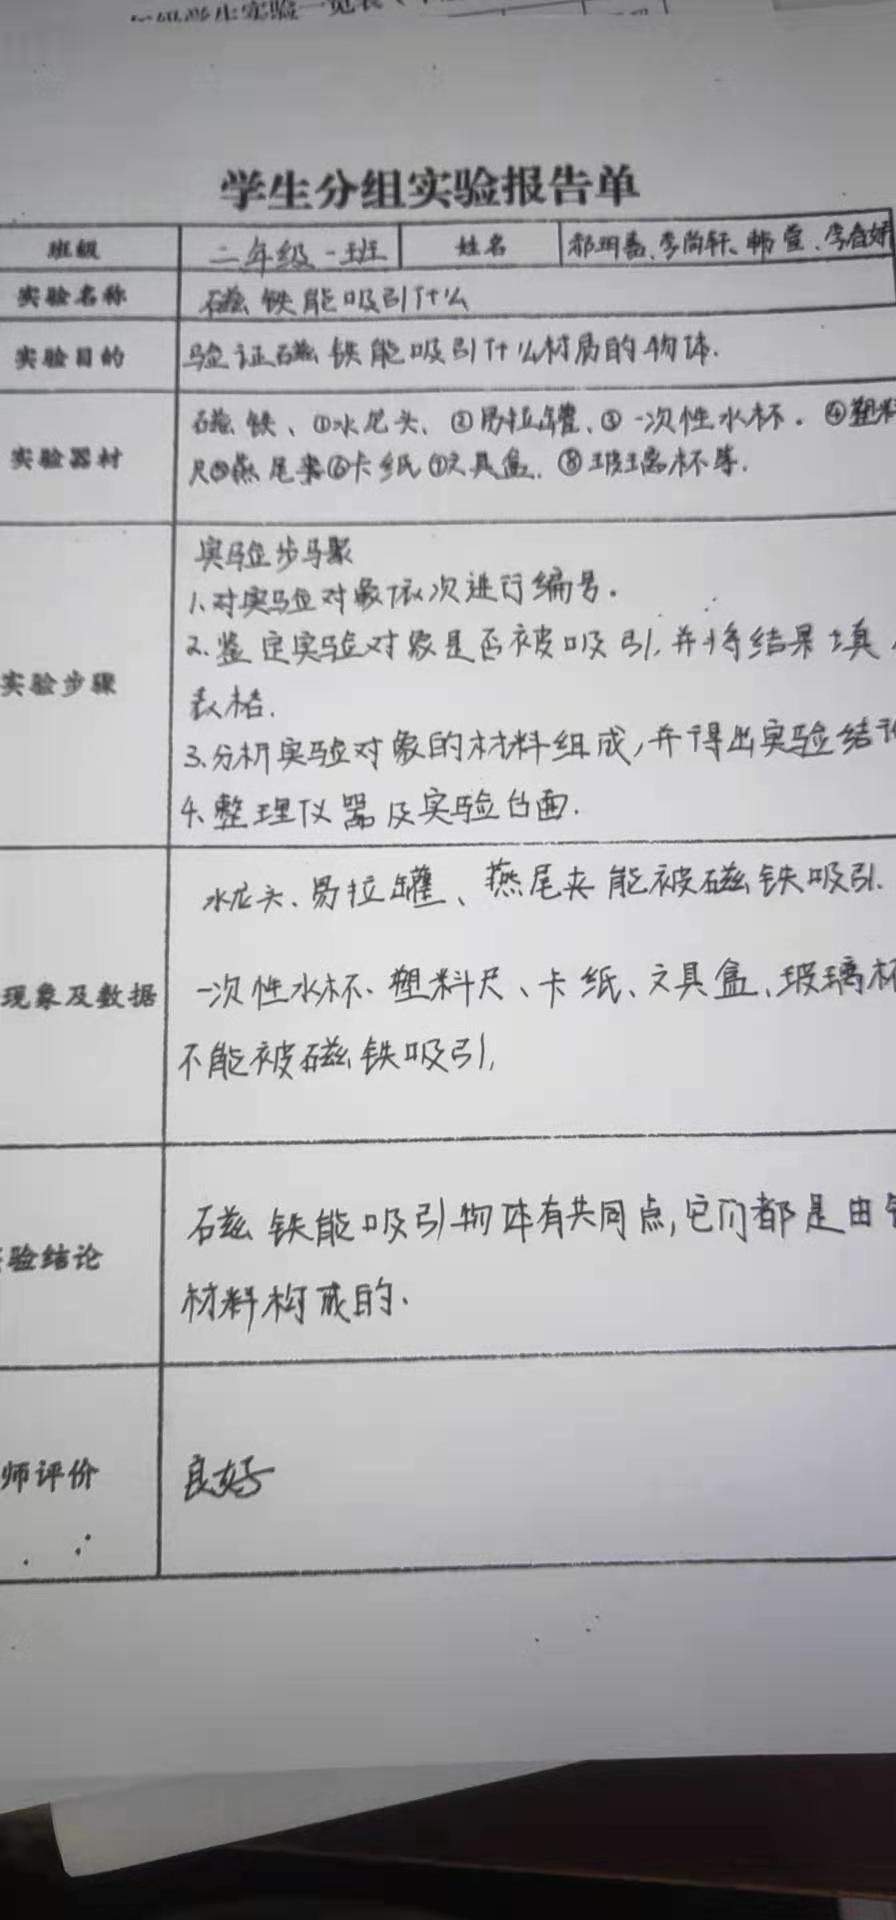 学生分组实验报告单
班级 二年级一班 姓名 李尚轩、韩萱、李
实验名称 磁铁能吸引什么
实验目的 验证磁铁能吸引什么材质的物体.
实验器材 磁铁、①水龙头、②易拉罐、③一次性水杯.④塑料
尺⑤燕尾夹⑥卡纸⑦文具盒.⑧玻璃杯等.
实验步骤
1.对实验对象依次进行编号.
2.鉴定实验对象是否被吸引,并将结果填
实验步骤 表格.
3.分析实验对象的材料组成,并得出实验结
4.整理仪器及实验台面.
水龙头、易拉罐、燕尾夹能被磁铁吸引.
现象及数据 一次性水杯、塑料尺、卡纸、文具盒、玻璃杯
不能被磁铁吸引,
磁铁能吸引物体有共同点,它们都是由
验结论 材料构成的.
师评价 良好